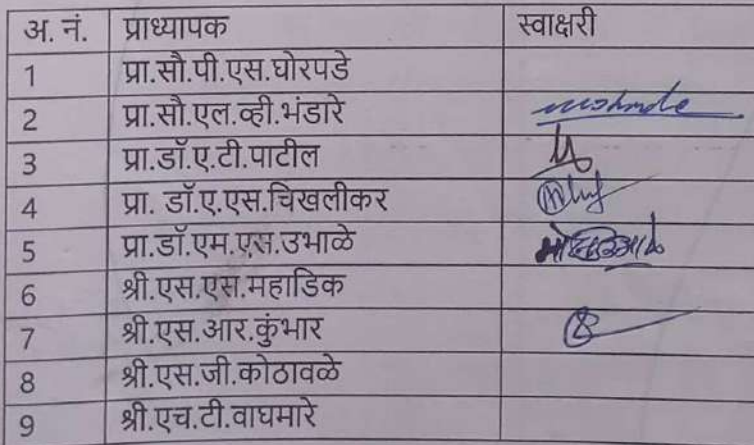 अ. नं. प्राध्यापक स्वाक्षरी
1 प्रा.सौ.पी.एस.घोरपडे
2 प्रा.सौ.एल.व्ही.भंडारे
3 प्रा.डॉ.ए.टी.पाटील
4 प्रा. डॉ.ए.एस.चिखलीकर
5 प्रा.डॉ.एम.एस.उभाळे
6 श्री.एस.एस.महाडिक
7 श्री.एस.आर.कुंभार
8 श्री.एस.जी.कोठावळे
9 श्री.एच.टी.वाघमारे